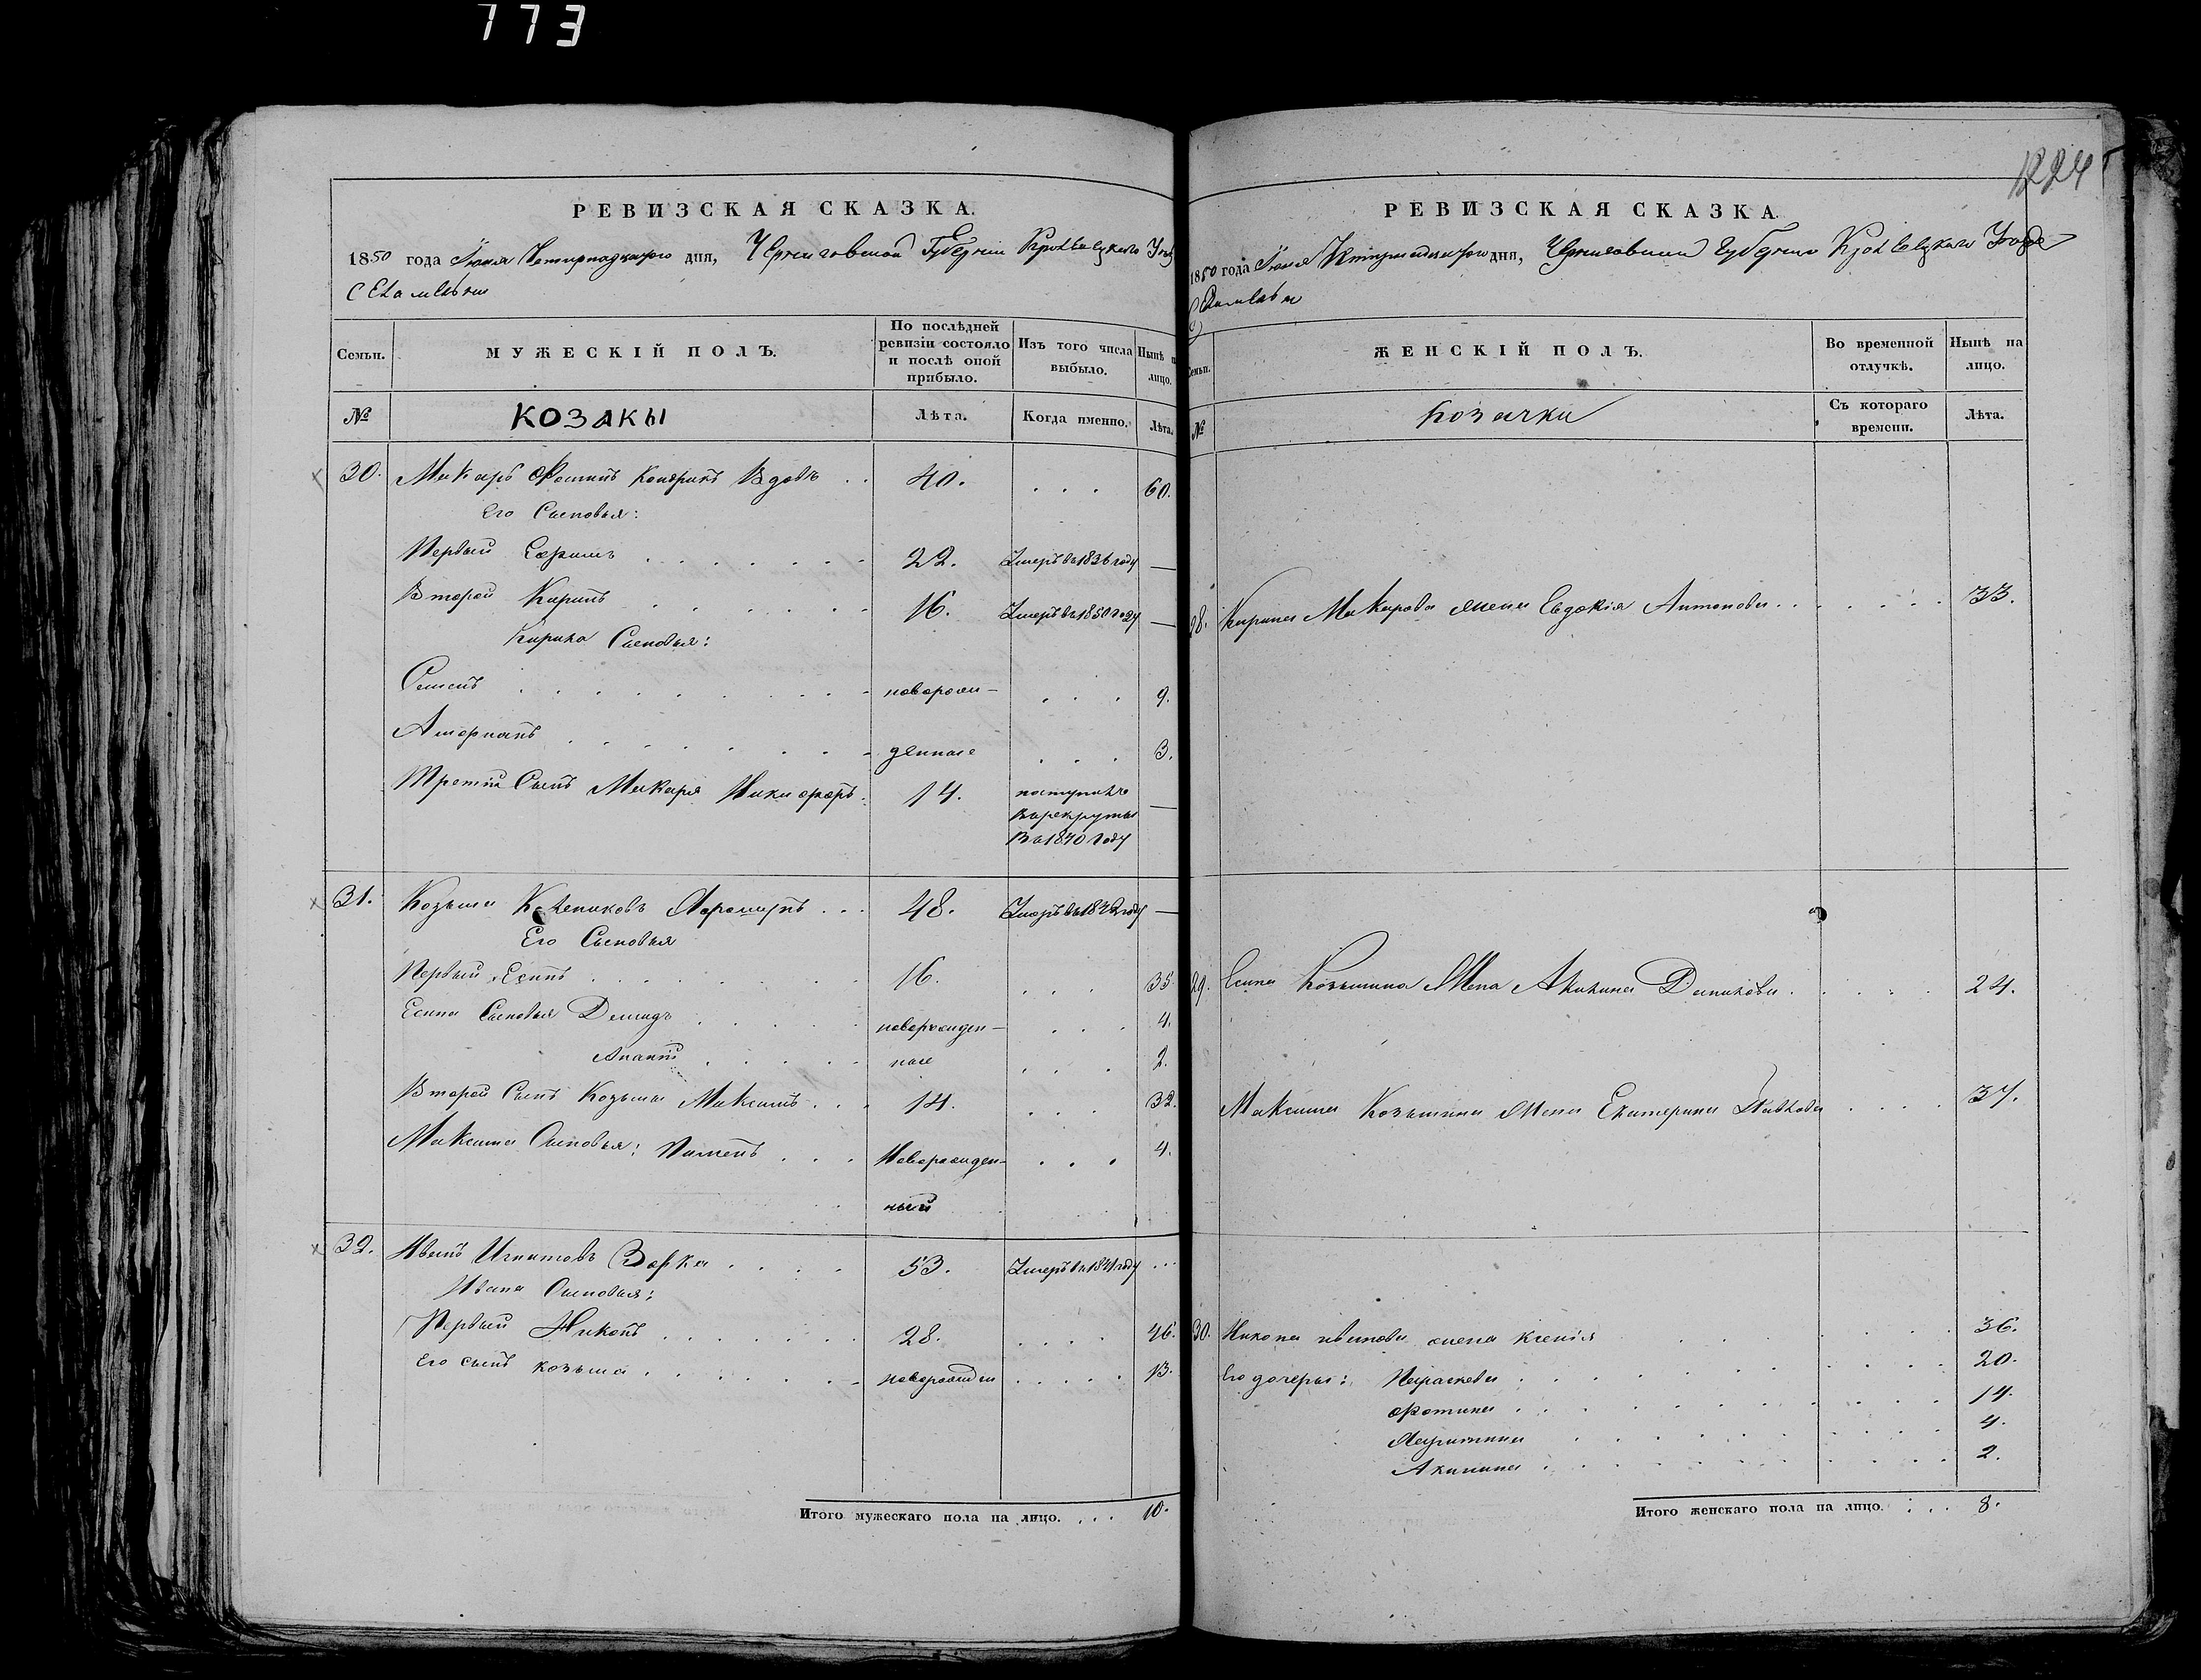 773
1224
РЕВИЗСКАЯ СКАЗКА.
1850 года Іюня Четырнадцатого дня, Черниговской Губерніи Кролевецкаго
РЕВИЗСКАЯ СКАЗКА.
1850 года Іюня Четырнадцатого дня, Черниговской Губерніи Кролевецкаго Уезда
Семьи.
МУЖЕСКІЙ ПОЛЪ.
По послѣдней ревизіи состояло и послѣ оной прибыло.
Изъ того числа выбыло.
Нынѣ на лицо.
№
КОЗАКЫ
Лѣта.
Когда именно.
Лѣта.
30. Макаръ Фоминъ Вдовъ . . 40. . . . 60.
Его Сыновья:
Первый Ефимъ 22. Умеръ въ 1836 году —
Второй Кирикъ 16. Умеръ въ 1850 году —
Кирика Сыновья:
Семенъ новорож- . . . 9.
денные . . . 3.
Третій Сынъ Макара Никифоръ. 14. поступилъ
в рекруты —
въ 1840 году
31. Козьма 48. Умеръ въ 1842 году —
Его Сыновья
Первый Есипъ 16. . . . 35.
Есипа Сыновья Демидъ новорожден- . . . 4.
ные . . . 2.
Второй Сынъ Козьмы Максимъ . . . 14. . . . 32.
Максима Сыновья: Пименъ . . . Новорожден- . . . 4.
ный
32. Иванъ Игнатовъ Зорка . . . . 53. Умеръ въ 1841 году ...
Ивана Сыновья:
Первый Никонъ 28. . . . . 46.
Его сынъ козьма новорожден . . . . . 13.
Итого мужескаго пола на лицо. . . . 10.
Семьи.
ЖЕНСКІЙ ПОЛЪ.
Во временной отлучкѣ.
Нынѣ на лицо.
№
Козачки
Съ котораго времени.
Лѣта.
28. Кирика Макарова жена Евдокія Антонова 33.
29. Есипа Козьмина Жена Акилина Данилова 24.
Максима Козьмина Жена Екатерина Павлова 37.
30. Никона иванова жена ксенія 36.
Его дочеры: Параскева 20.
фотина 14.
4.
Акилина 2.
Итого женскаго пола на лицо. . . . 8.